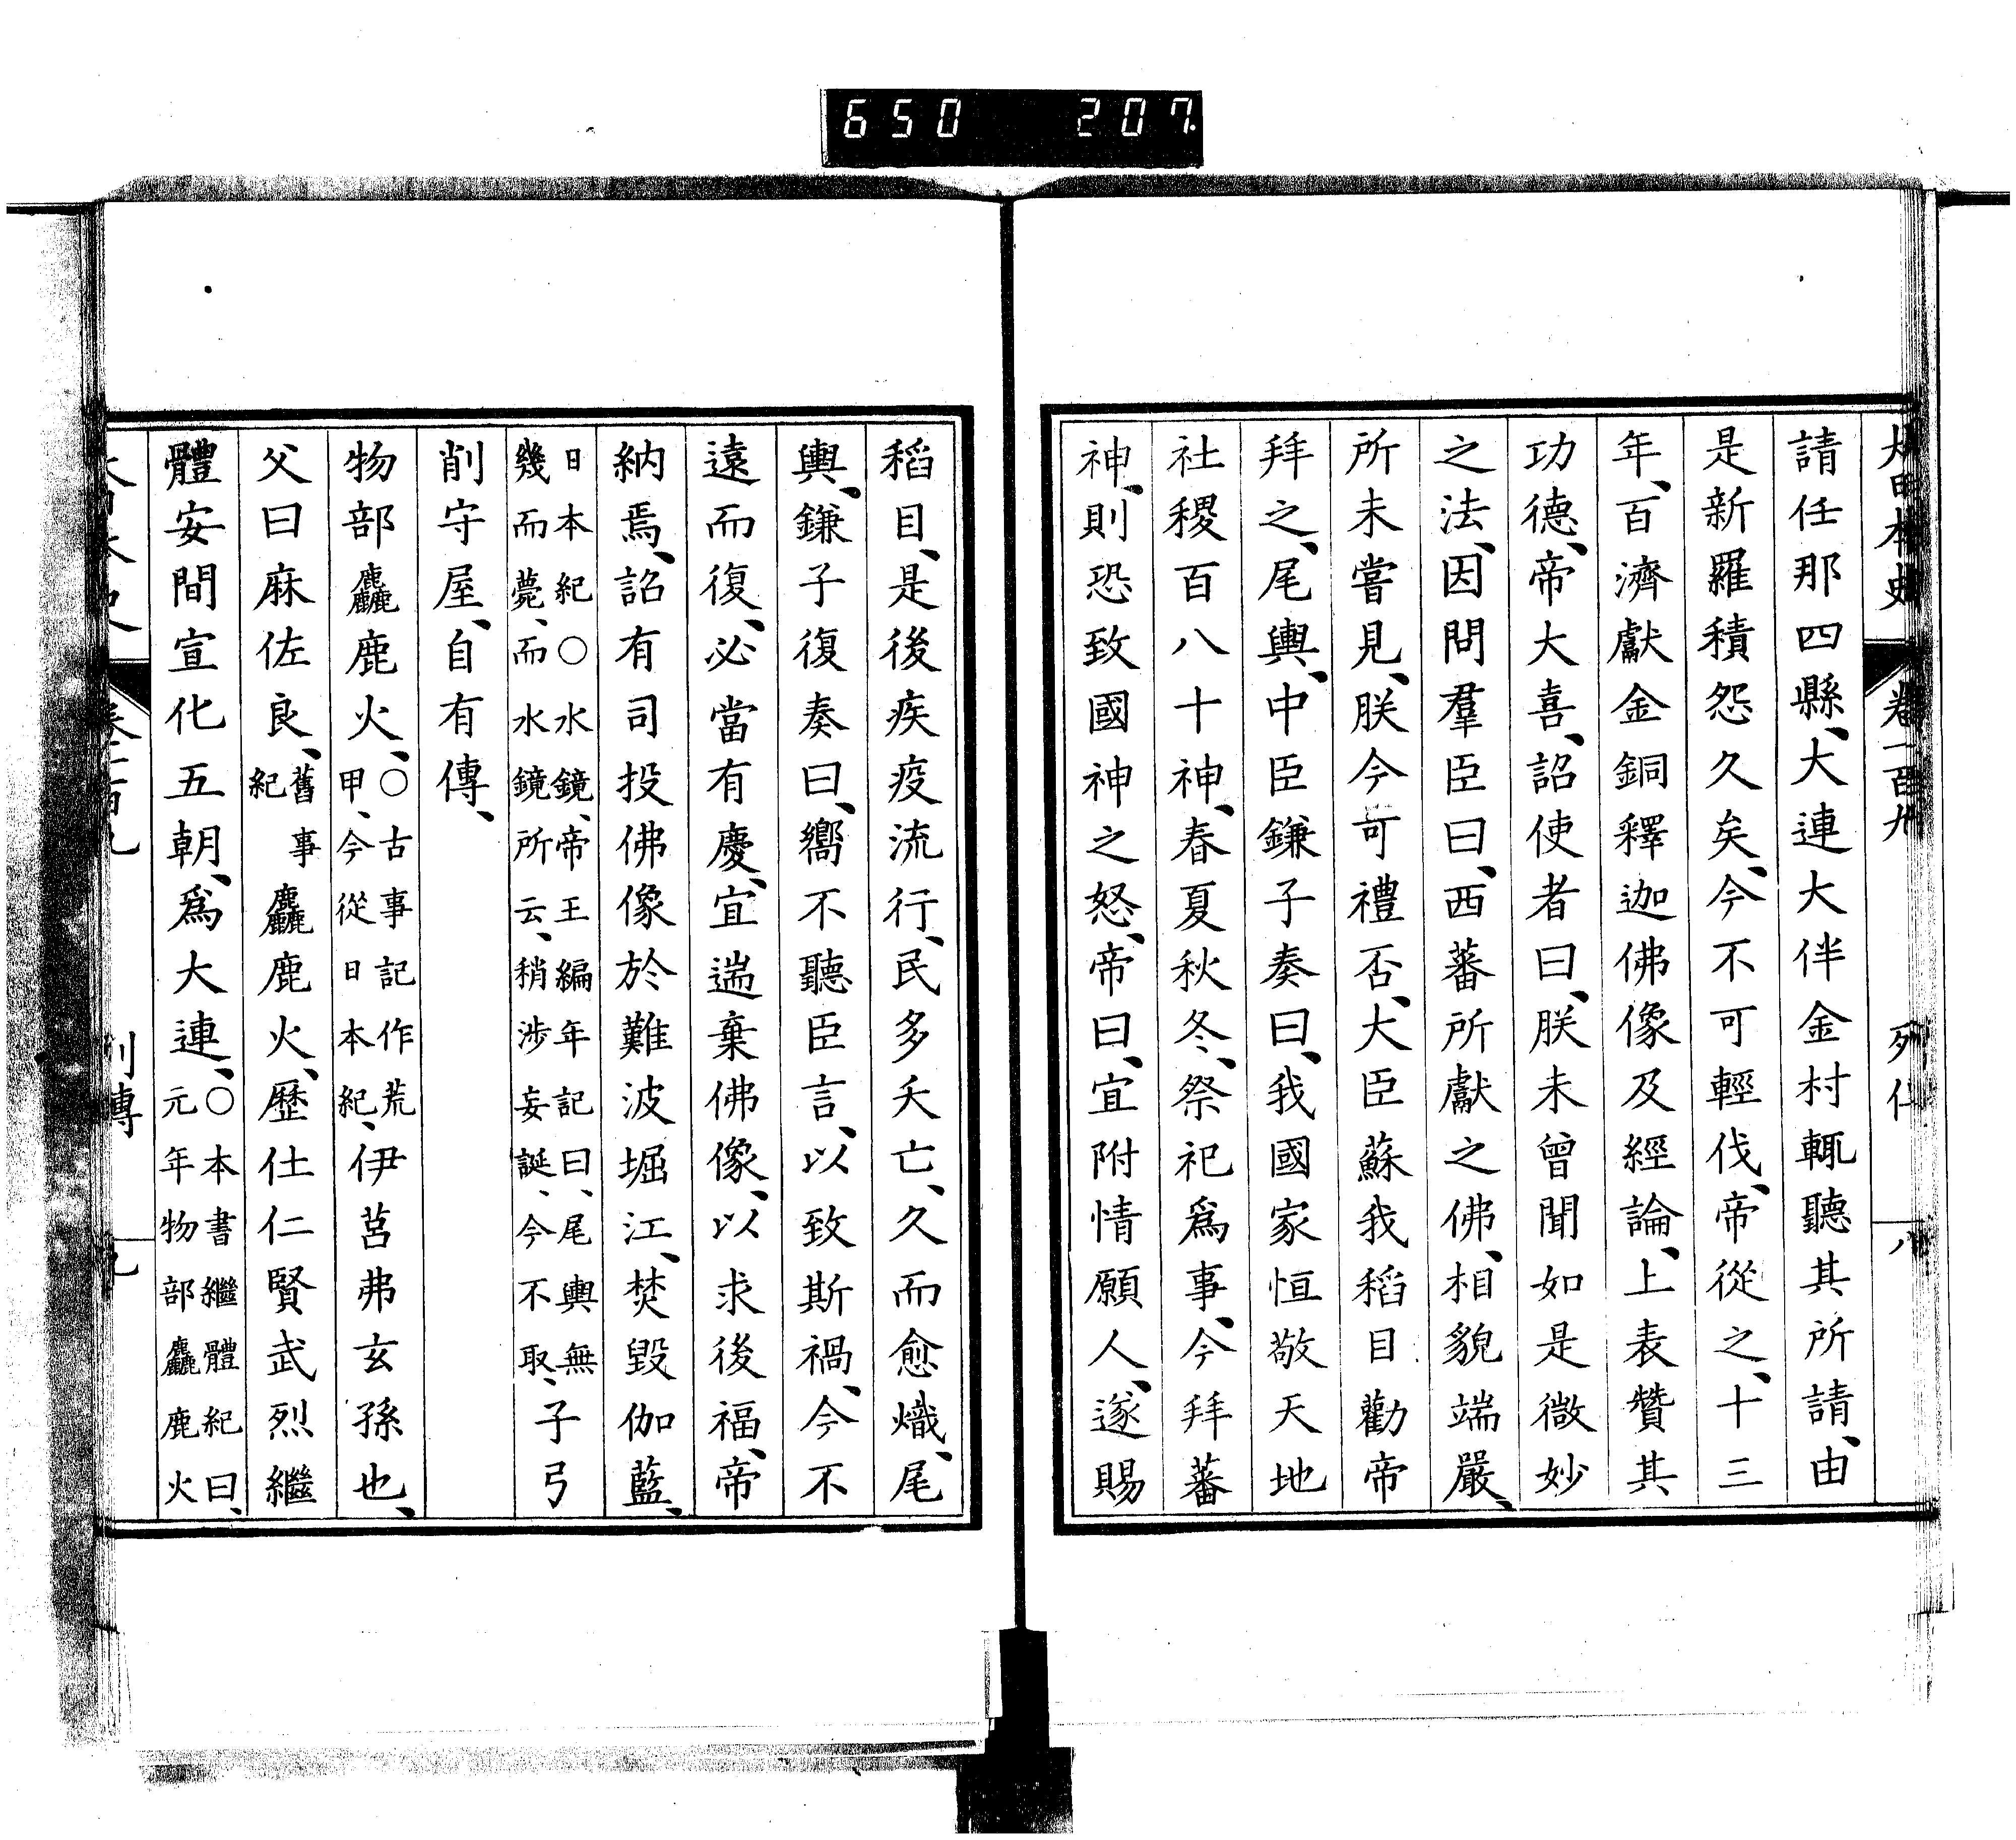 650 207.
請任那四縣、大連大伴金村輒聽其所請、由
是新羅積怨久矣、今不可輕伐、帝從之、十三
年、百濟獻金銅釋迦佛像及經論、上表贊其
功德、帝大喜、詔使者曰、朕未曾聞如是微妙
之法、因問羣臣曰、西蕃所獻之佛、相貌端嚴、
所未嘗見、朕今可禮否、大臣蘇我稻目勸帝
拜之、尾輿、中臣鎌子奏曰、我國家恒敬天地
社稷百八十神、春夏秋冬、祭祀爲事、今拜蕃
神、則恐致國神之怒、帝曰、宜附情願人、遂賜
稻目、是後疾疫流行、民多夭亡、久而愈熾、尾
輿、鎌子復奏曰、嚮不聽臣言、以致斯禍、今不
遠而復、必當有慶、宜遄棄佛像、以求後福、帝
納焉、詔有司投佛像於難波堀江、焚毀伽藍、
日本紀○水鏡、帝王編年記曰、尾輿無
幾而薨、而水鏡所云、稍涉妄誕、今不取、子弓
削守屋、自有傳、
物部麤鹿火、○古事記作荒甲、今從日本紀、伊莒弗玄孫也、
父曰麻佐良、舊事紀麤鹿火、歷仕仁賢武烈繼
體安閒宣化五朝、爲大連、○本書繼體紀曰、元年物部麤鹿火